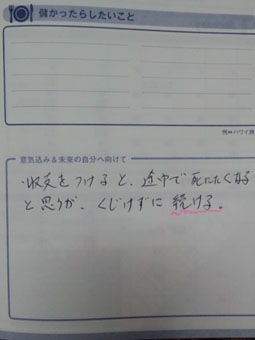 儲かったらしたいこと
例⇒ハワイ旅
意気込み&未来の自分へ向けて
・収支をつけると、途中で死にたくなる
と思うが、くじけずに続ける。